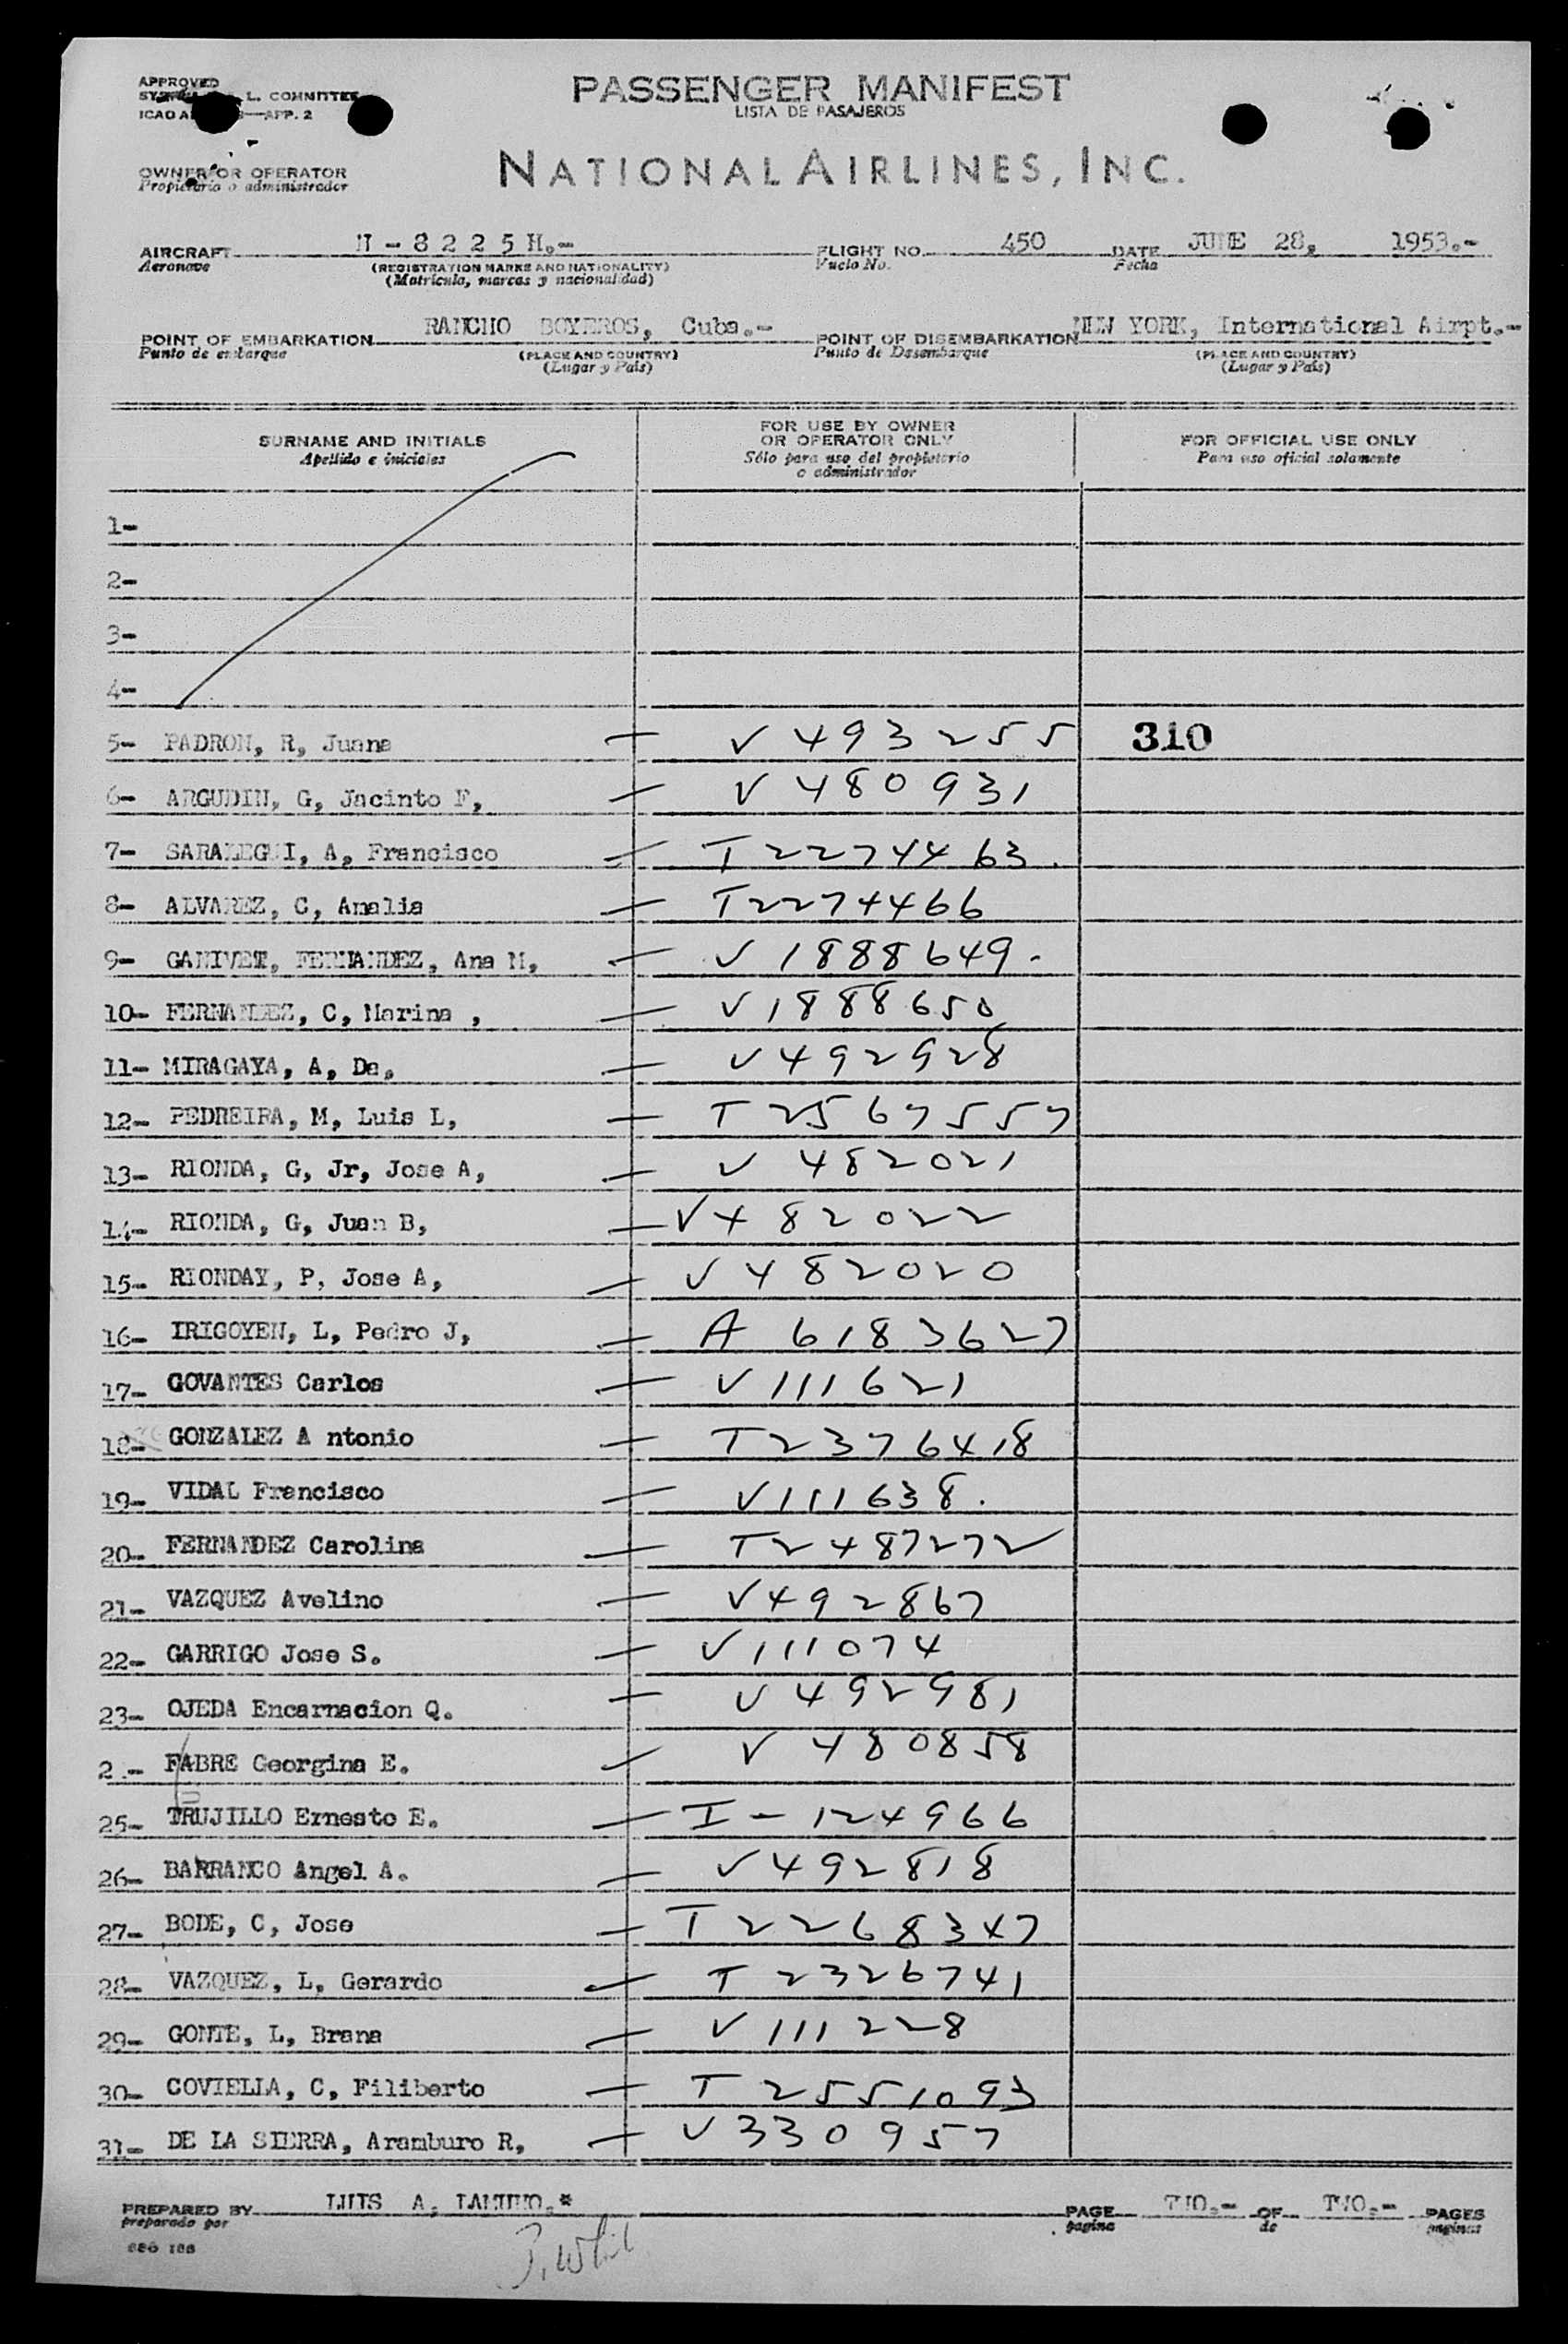 APPROVED
L. COMMITTEE
ICAO APP. 2
PASSENGER MANIFEST
LISTA DE PASAJEROS
OWNER OR OPERATOR
Propietario o administrador
NATIONAL AIRLINES, INC.
AIRCRAFT N - 8 2 2 5 H.- FLIGHT NO. 450 DATE JUNE 28, 1953.-
Aeronave (REGISTRATION MARKS AND NATIONALITY) Vuelo No. Fecha
(Matricula, marcas y nacionalidad)
POINT OF EMBARKATION RANCHO BOYEROS, Cuba.- POINT OF DISEMBARKATION NEW YORK, International Airpt.-
Punto de embarque (PLACE AND COUNTRY) Punto de Desembarque (PLACE AND COUNTRY)
(Lugar y País) (Lugar y País)
SURNAME AND INITIALS
Apellido e iniciales
FOR USE BY OWNER
OR OPERATOR ONLY
Sólo para uso del propietario
o administrador
FOR OFFICIAL USE ONLY
Para uso oficial solamente
1-
2-
3-
4-
5- PADRON, R, Juana — V 493255 310
6- ARGUDIN, G, Jacinto F, — V 480931
7- SARALEGUI, A, Francisco — T2274463.
8- ALVAREZ, C, Amalia — T2274466
9- GANIVET, FERNANDEZ, Ana M, — V 1888649.
10- FERNANDEZ, C, Marina , — V1888650
11- MIRAGAYA, A, De, — V492928
12- PEDREIRA, M, Luis L, — T2567557
13- RIONDA, G, Jr, Jose A, — V 482021
14- RIONDA, G, Juan B, — V482022
15- RIONDAY, P, Jose A, — V482020
16- IRIGOYEN, L, Pedro J, — A 6183627
17- GOVANTES Carlos — V111621
18- GONZALEZ A ntonio — T2376418
19- VIDAL Francisco — V111638.
20- FERNANDEZ Carolina — T2487272
21- VAZQUEZ Avelino — V492867
22- GARRIGO Jose S. — V111074
23- OJEDA Encarnacion Q. — V492981
2 .- FABRE Georgina E. — V 480858
25- TRUJILLO Ernesto E. — I-124966
26- BARRANCO Angel A. — V492818
27- BODE, C, Jose — T2268347
28- VAZQUEZ, L, Gerardo — T 2326741
29- GONTE, L, Brana — V111228
30- COVIELLA, C, Filiberto — T2551093
31- DE LA SIERRA, Aramburo R, — V330957
PREPARED BY LUIS A. PAGE TWO.- OF TWO.- PAGES
preparado por pagina de paginas